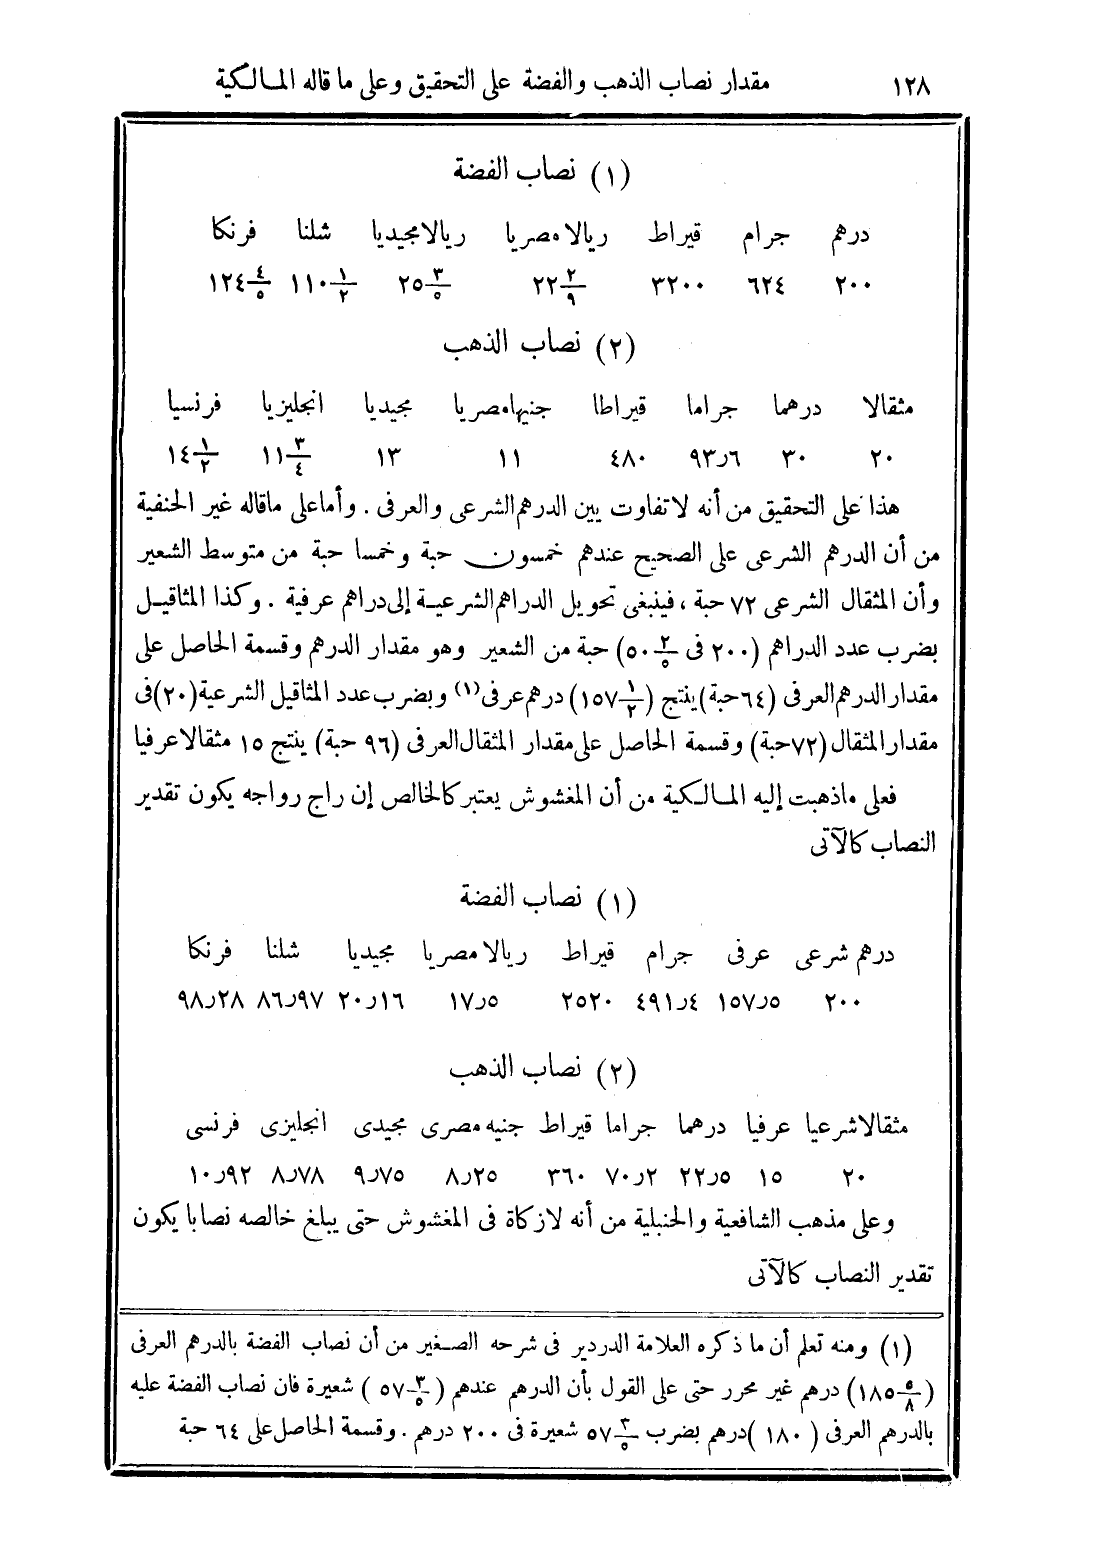 ١٢٨ مقدار نصاب الذهب والفضة على التحقيق وعلى ما قاله المالكية
(١) نصاب الفضة
درهم جرام قيراط ريالا مصريا ريالا مجيديا شلنا فرنكا
٢٠٠ ٦٢٤ ٣٢٠٠ ٢٢ ٢/٩ ٢٥ ٣/٥ ١١٠ ١/٢ ١٢٤ ٤/٥
(٢) نصاب الذهب
مثقالا درهما جراما قيراطا جنيها مصريا مجيديا انجليزيا فرنسيا
٢٠ ٣٠ ٩٣٫٦ ٤٨٠ ١١ ١٣ ١١ ٣/٤ ١٤ ١/٢
هذا على التحقيق من أنه لا تفاوت بين الدرهم الشرعى والعرفى . وأما على ماقاله غير الحنفية
من أن الدرهم الشرعى على الصحيح عندهم خمسون حبة وخمسا حبة من متوسط الشعير
وأن المثقال الشرعى ٧٢ حبة ، فينبغى تحويل الدراهم الشرعية إلى دراهم عرفية . وكذا المثاقيل
بضرب عدد الدراهم (٢٠٠ فى ٥٠ ٢/٥) حبة من الشعير وهو مقدار الدرهم وقسمة الحاصل على
مقدار الدرهم العرفى (٦٤ حبة) ينتج (١٥٧ ١/٢) درهم عرفى (١) وبضرب عدد المثاقيل الشرعية (٢٠) فى
مقدار المثقال (٧٢ حبة) وقسمة الحاصل على مقدار المثقال العرفى (٩٦ حبة) ينتج ١٥ مثقالا عرفيا
فعلى ماذهبت إليه المالكية من أن المغشوش يعتبر كالخالص إن راج رواجه يكون تقدير
النصاب كالآتى
(١) نصاب الفضة
درهم شرعى عرفى جرام قيراط ريالا مصريا مجيديا شلنا فرنكا
٢٠٠ ١٥٧٫٥ ٤٩١٫٤ ٢٥٢٠ ١٧٫٥ ٢٠٫١٦ ٨٦٫٩٧ ٩٨٫٢٨
(٢) نصاب الذهب
مثقالا شرعيا عرفيا درهما جراما قيراط جنيه مصرى مجيدى انجليزى فرنسى
٢٠ ١٥ ٢٢٫٥ ٧٠٫٢ ٣٦٠ ٨٫٢٥ ٩٫٧٥ ٨٫٧٨ ١٠٫٩٢
وعلى مذهب الشافعية والحنبلية من أنه لا زكاة فى المغشوش حتى يبلغ خالصه نصابا يكون
تقدير النصاب كالآتى
(١) ومنه تعلم أن ما ذكره العلامة الدردير فى شرحه الصغير من أن نصاب الفضة بالدرهم العرفى
(١٨٥ ٥/٨) درهم غير محرر حتى على القول بأن الدرهم عندهم (٥٧ ٣/٥) شعيرة فان نصاب الفضة عليه
بالدرهم العرفى (١٨٠) درهم بضرب ٥٧ ٣/٥ شعيرة فى ٢٠٠ درهم . وقسمة الحاصل على ٦٤ حبة